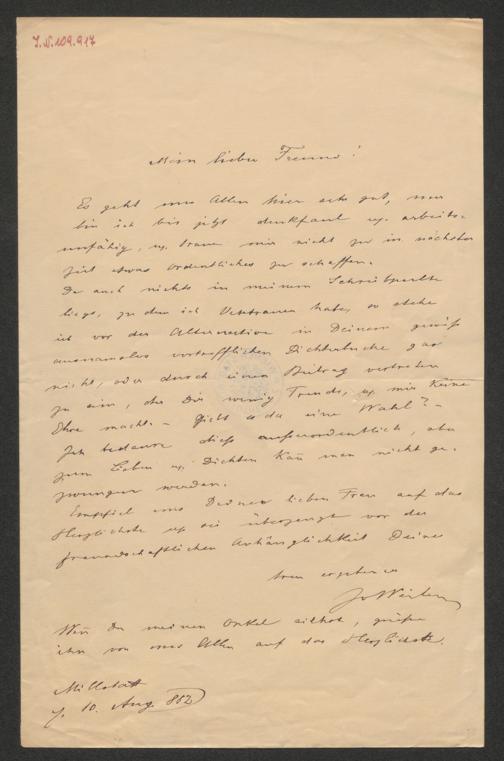 J.N. 109.917
Mein lieber Freund!
Es geht uns Allen hier sehr gut, nur
bin ich bis jetzt denkfaul u. arbeits-
unfähig, u. traue mir nicht zu in nächster
Zeit etwas Ordentliches zu schaffen.
Da auch nichts in meinem Schreibpulte
liegt, zu dem ich Vertrauen habe, so stehe
ich vor der Alternative in Deinem gewiß
ausnamslos vortrefflichen Dichterbuche gar
nicht, oder durch einen Beitrag vertreten
zu sein, der Dir wenig Freude, u. mir keine
Ehre macht. – Gibt es da eine Wahl? –
Ich bedaure dieß außerordentlich, aber
zum Lieben u. Dichten kann man nicht ge-
zwungen werden.
Empfiel uns Deiner lieben Frau auf das
Herzlichste u. sei überzeugt von der
freundschaftlichen Anhänglichkeit Deines
treu ergebenen
Wenn Du meinen Onkel siehst, grüße
ihn von uns Allen auf das Herzlichste.
Millstatt
10. Aug. 882